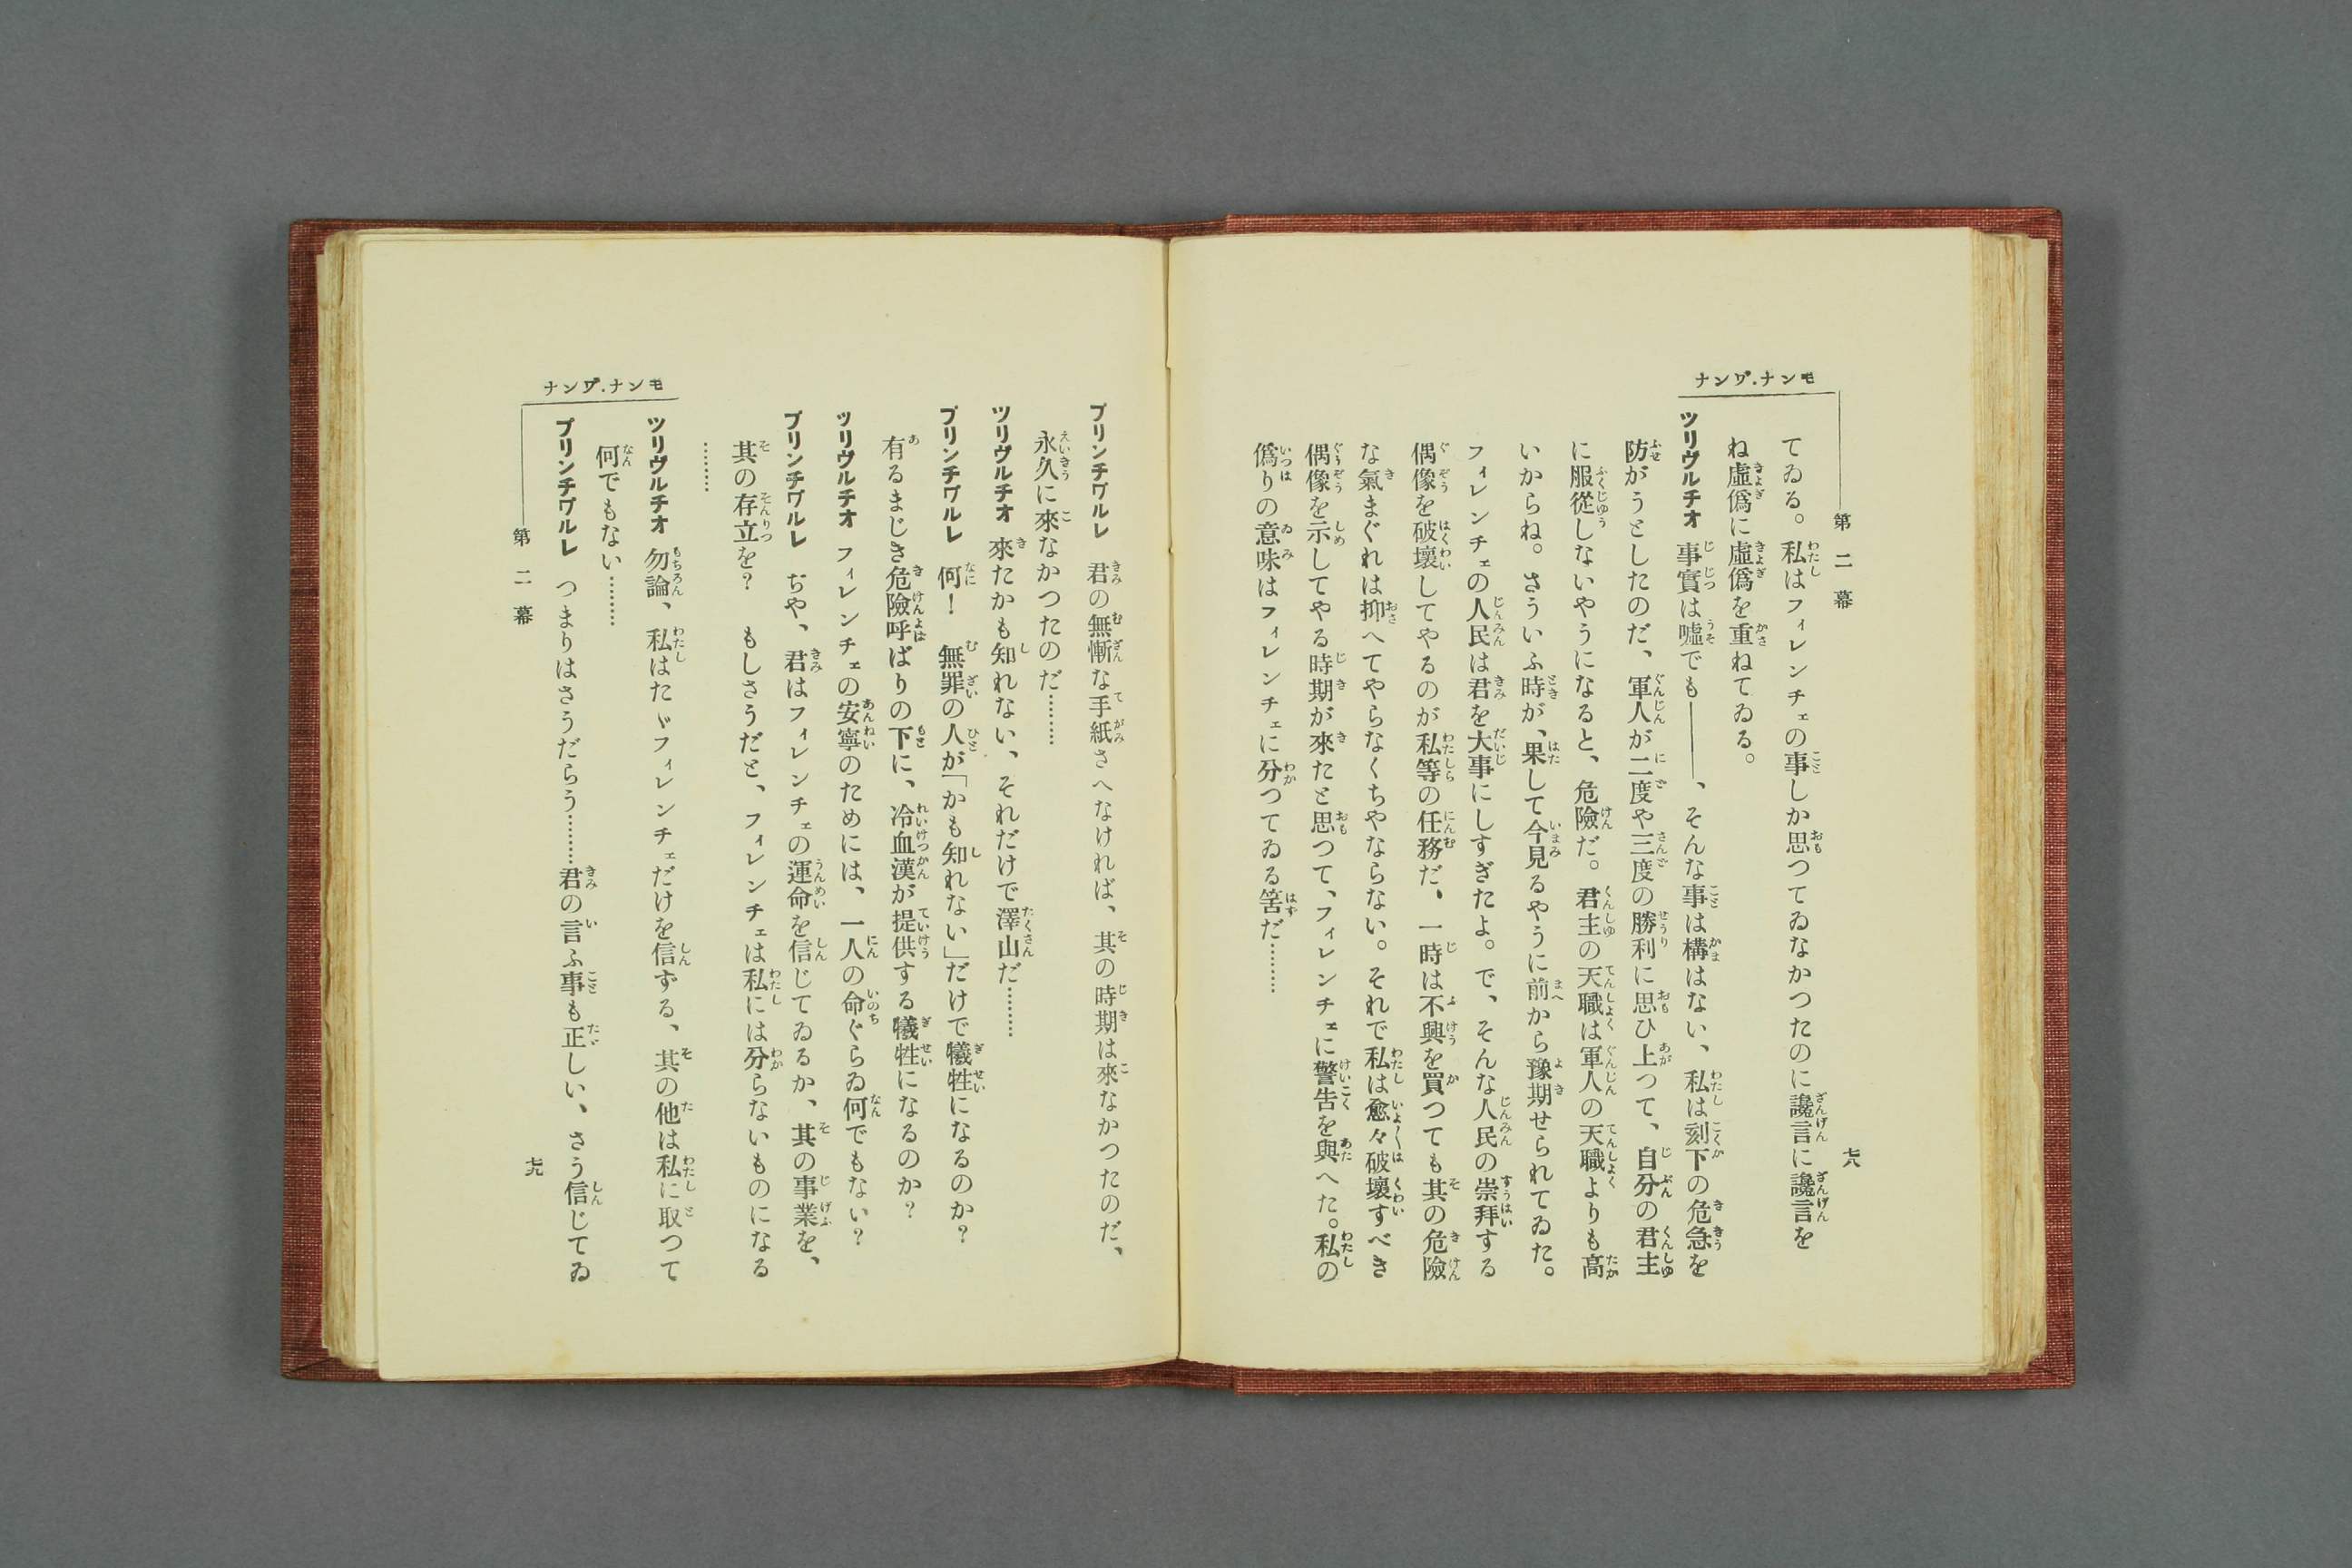 モンナ.ワ゛ンナ
第二幕
七八
てゐる。私はフィレンチェの事しか思つてゐなかつたのに讒言に讒言を
ね虛僞に虛僞を重ねてゐる。
ツリヴルチオ 事實は噓でも――、そんな事は構はない、私は刻下の危急を
防がうとしたのだ、軍人が二度や三度の勝利に思ひ上つて、自分の君主
に服從しないやうになると、危險だ。君主の天職は軍人の天職よりも高
いからね。さういふ時が、果して今見るやうに前から豫期せられてゐた。
フィレンチェの人民は君を大事にしすぎたよ。で、そんな人民の崇拜する
偶像を破壞してやるのが私等の任務だ、一時は不興を買つても其の危險
な氣まぐれは抑へてやらなくちやならない。それで私は愈々破壞すべき
偶像を示してやる時期が來たと思つて、フィレンチェに警告を與へた。私の
僞りの意味はフィレンチェに分つてゐる筈だ………
プリンチワ゛ルレ 君の無慚な手紙さへなければ、其の時期は來なかつたのだ、
永久に來なかつたのだ………
ツリヴルチオ 來たかも知れない、それだけで澤山だ………
プリンチワ゛ルレ 何! 無罪の人が「かも知れない」だけで犧牲になるのか?
有るまじき危險呼ばりの下に、冷血漢が提供する犧牲になるのか?
ツリヴルチオ フィレンチェの安寧のためには、一人の命ぐらゐ何でもない?
プリンチワ゛ルレ ぢや、君はフィレンチェの運命を信じてゐるか、其の事業を、
其の存立を? もしさうだと、フィレンチェは私には分らないものになる
………
ツリヴルチオ 勿論、私はたゞフィレンチェだけを信ずる、其の他は私に取つて
何でもない………
プリンチワ゛ルレ つまりはさうだらう………君の言ふ事も正しい、さう信じてゐ
モンナ.ワ゛ンナ
第二幕
七九